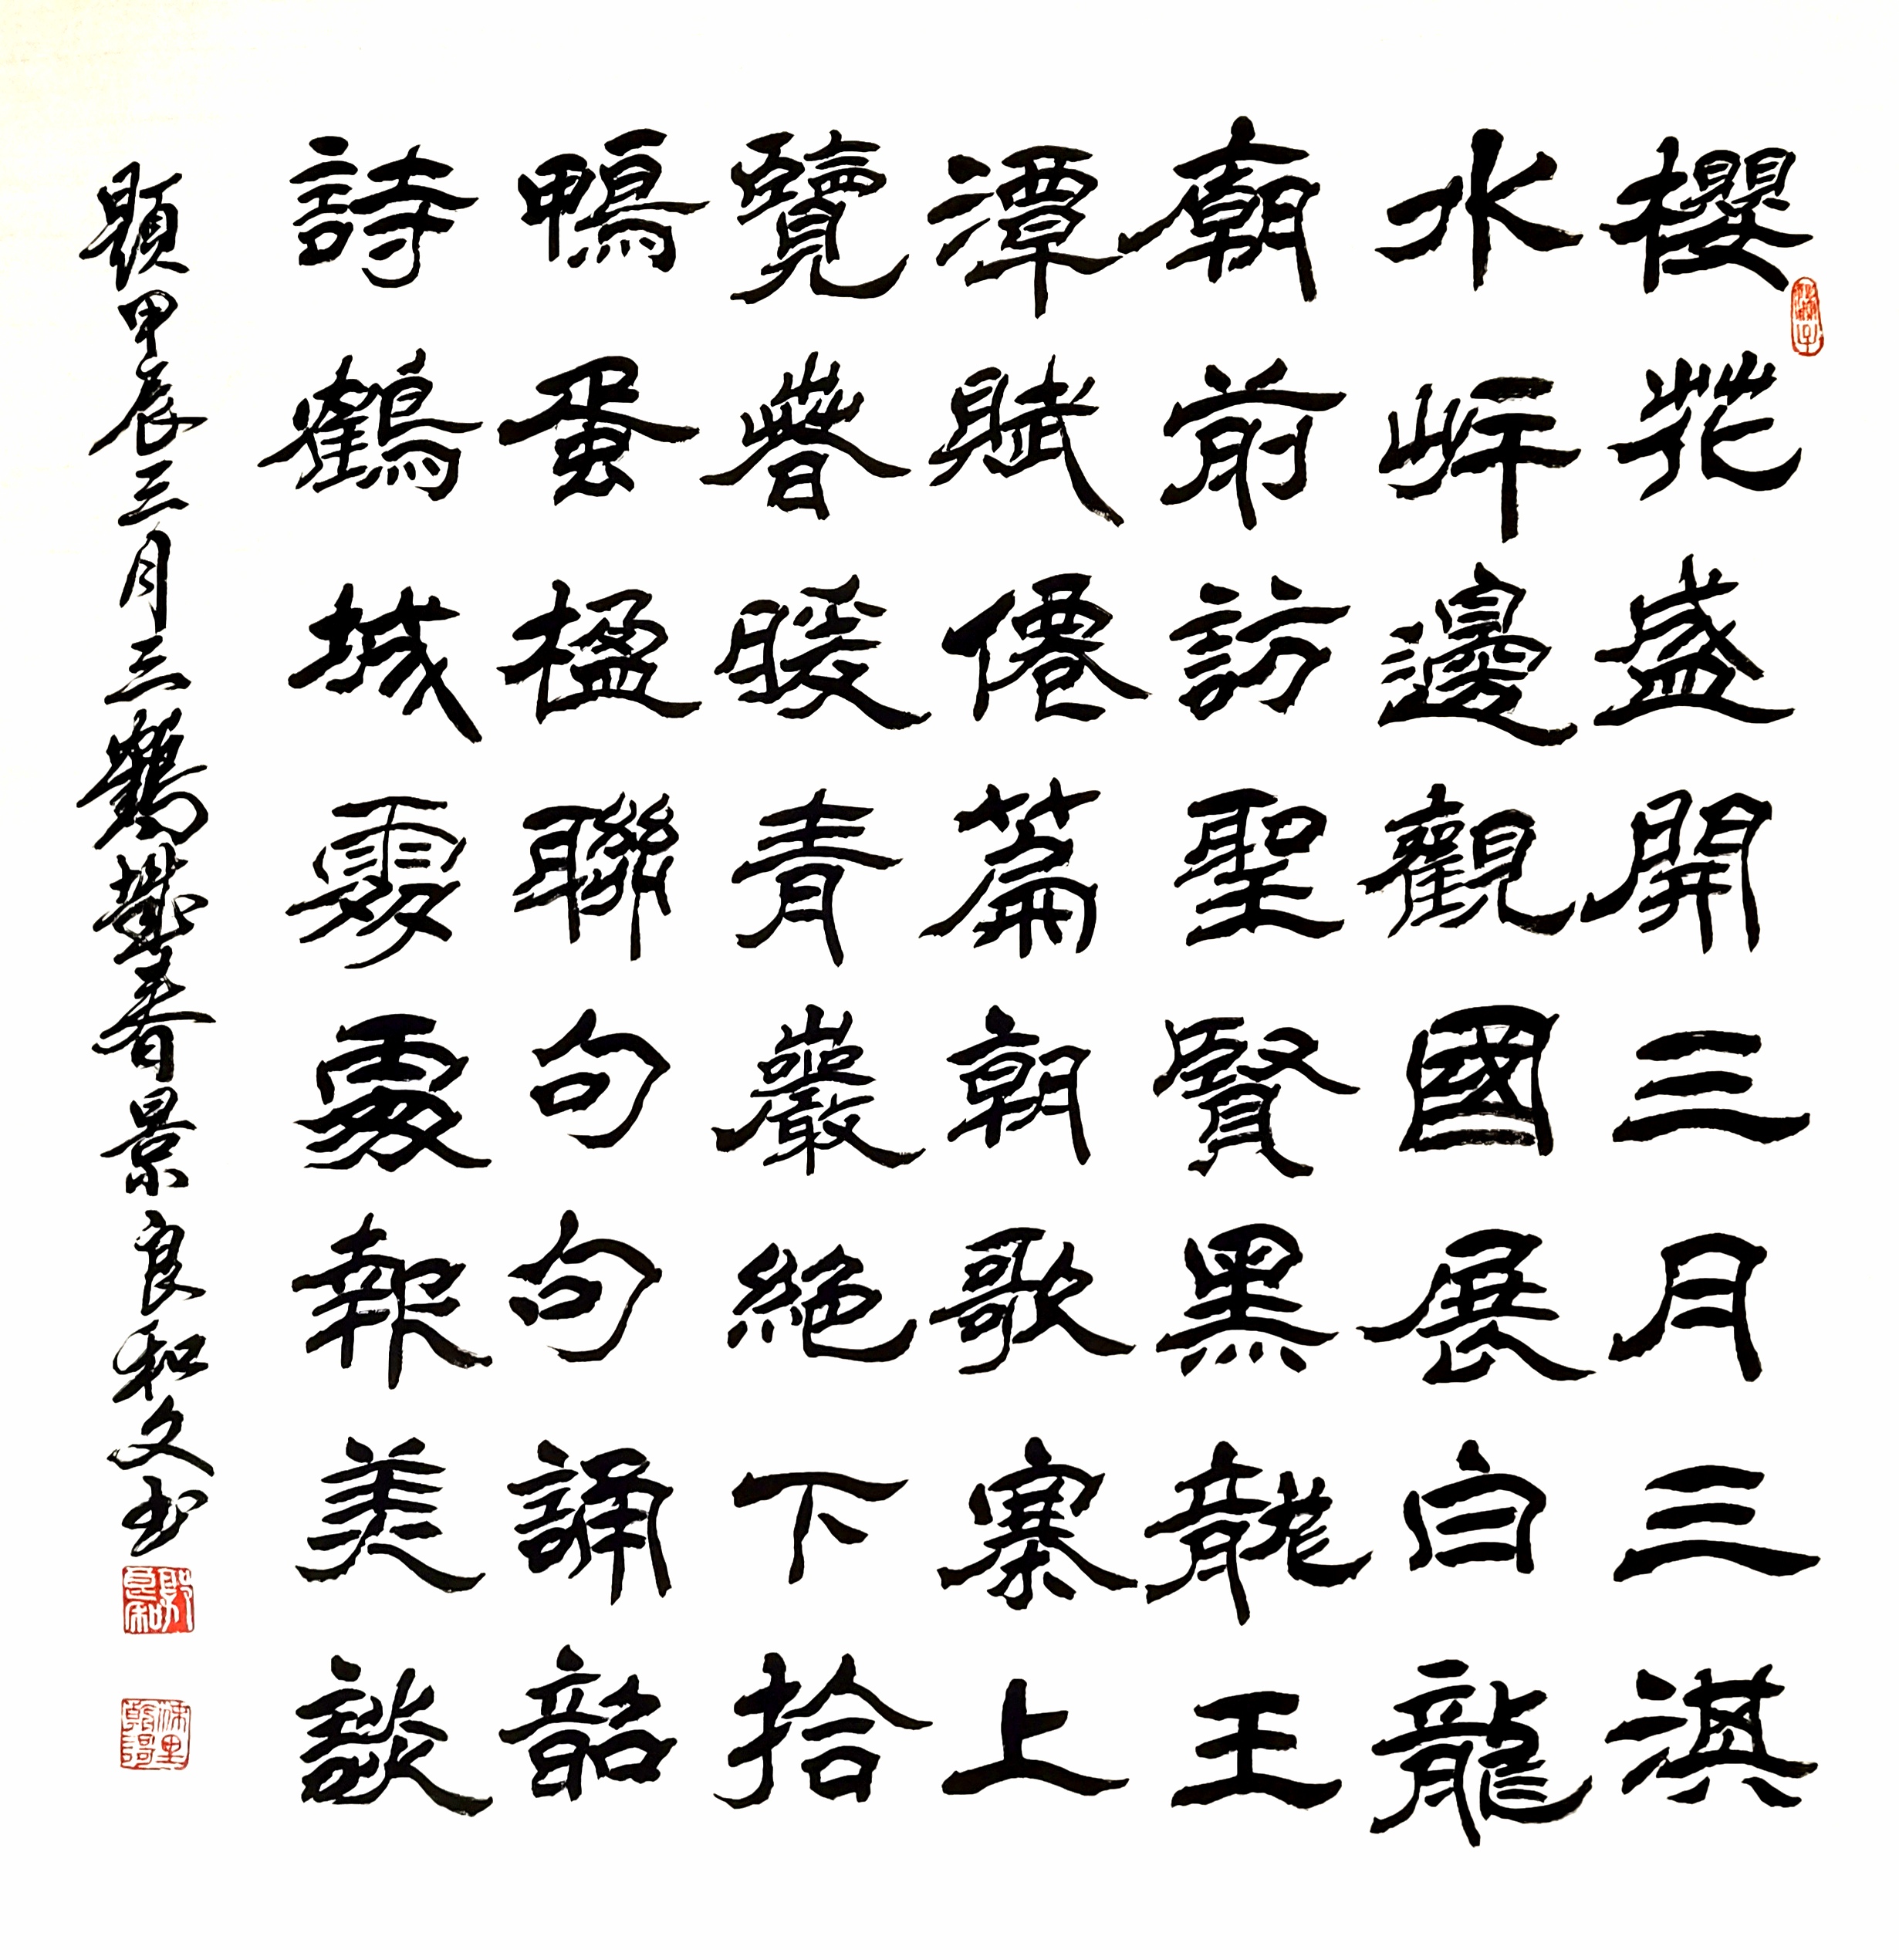 櫻花盛開三月三淇
水岸邊觀國展白龍
廟前訪聖賢黑龍王
潭賦僊篇朝歌寨上
覽春暖青巖絕下拾
鴨蛋楹聯句句誦韶
詩鶴城雰處報美談
題甲辰三月三鶴城春景良和文书